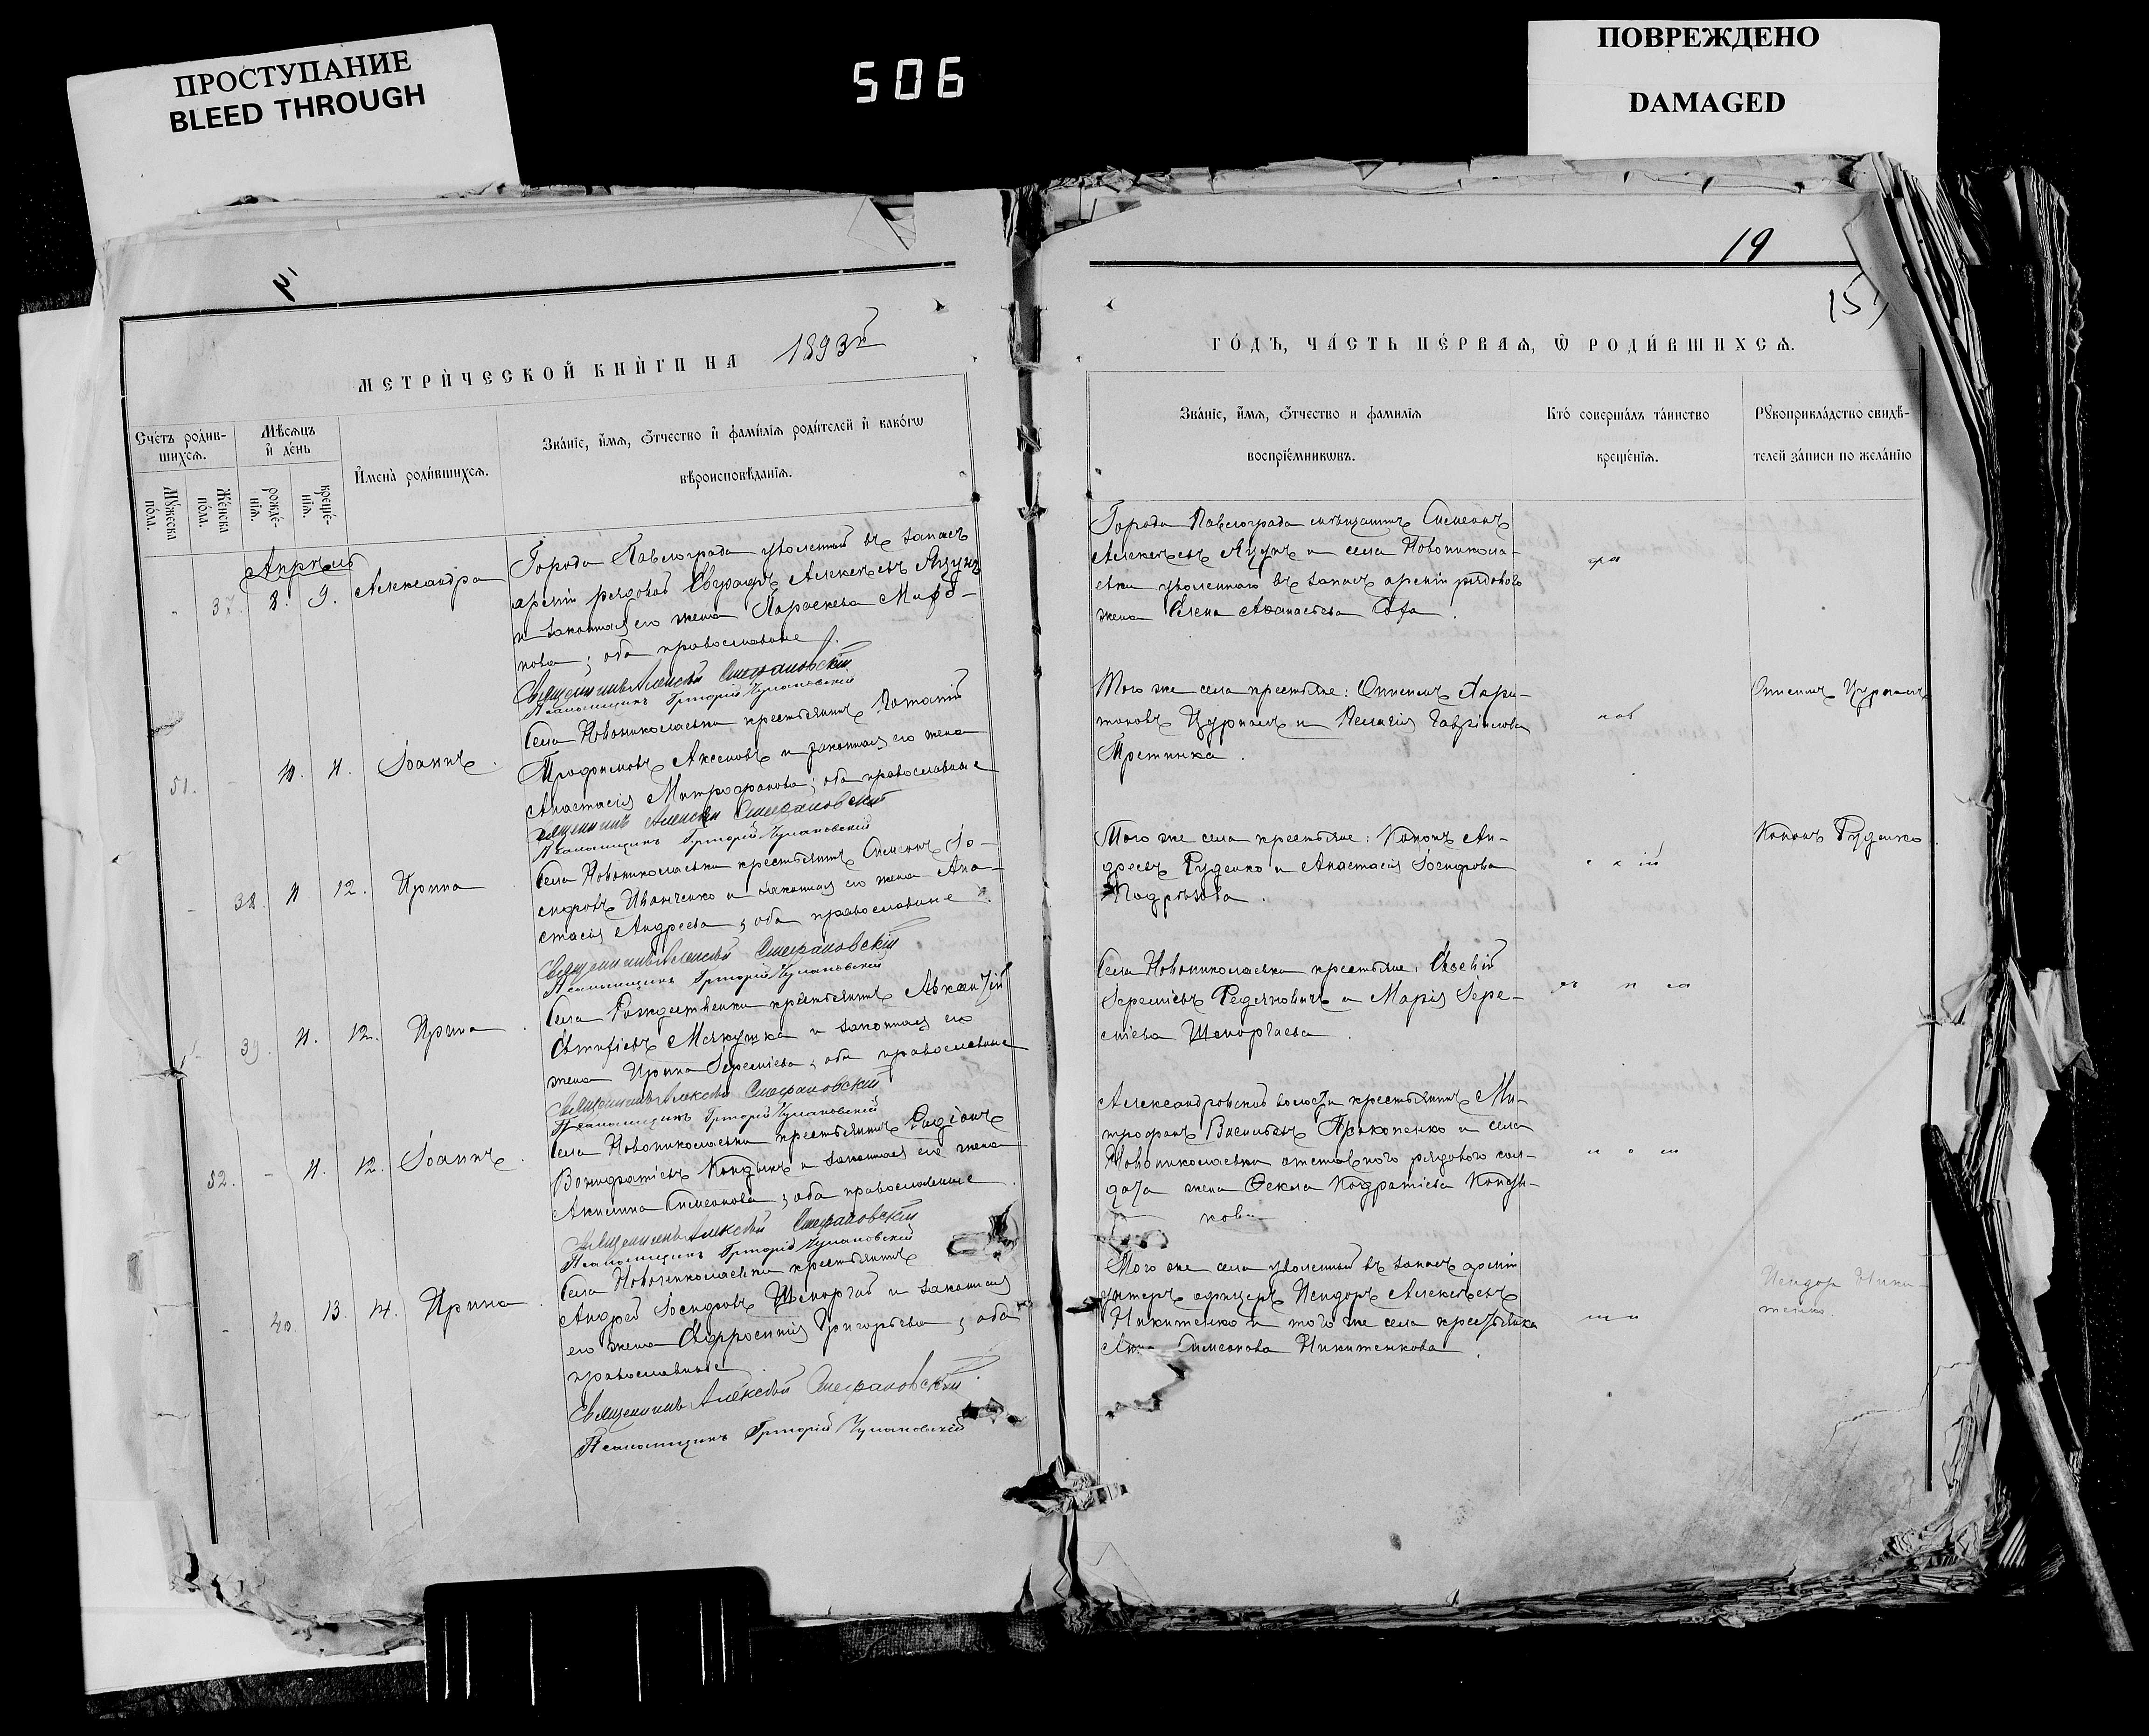 ПРОСТУПАНИЕ
BLEED THROUGH
506
ПОВРЕЖДЕНО
DAMAGED
19
МЕТРИ́ЧЕСКОЙ КНИ́ГИ НА 1893й
ГО́ДЪ, ЧА́СТЬ ПЕ́РВАѦ, Ѡ РОДИ́ВШИХСѦ.
Сче́тъ роди́в-
шихсѧ.
Мѣ́сѧцъ
и҆ де́нь
Му́жеска
по́ла.
Же́нска
по́ла.
рожде́-
нїѧ.
креще́-
нїѧ.
И҆мена̀ роди́вшихсѧ.
Зва́нїе, и҆́мѧ, ѻ҆́тчество и҆ фамѝлїѧ роди́телей и҆ како́гѡ
вѣроисповѣ́данїѧ.
Зва́нїе, и҆́мѧ, ѻ҆́тчество и фамилїѧ
воспрїе́мникѡвъ.
Кто́ соверша́лъ та́инство
креще́нїѧ.
Рꙋкоприкла́дство свидѣ́-
телей за́писи по жела́нїю
Апрѣль
37. 8. 9. Александра
Города Павлограда уволенный въ запасъ
арміи рядовой Евграфъ Алексѣевъ Яцунъ
и законная его жена Параскева Миро-
нова; оба православные
Священникъ Алексѣй Стефановскій
Псаломщикъ Григорій Чулановскій
Города Павлограда мѣщанинъ Симеонъ
Алексѣевъ Яцунъ и села Новоникола-
евки уволеннаго въ запасъ арміи рядового
жена Елена Аѳанасьева
51. - 10. 11. Іоаннъ.
Села Новониколаевки крестьянинъ Потапій
Трофимовъ Аксеновъ и законная его жена
Анастасія Митрофанова; оба православные
Священникъ Алексѣй Стефановскій
Псаломщикъ Григорій Чулановскій
Того же села крестьяне: Онисимъ Хари-
тоновъ Цуркасъ и Пелагія Гавріилова
Третинка.
Онисимъ Цуркасъ
- 38. 11 12. Ирина
Села Новониколаевки крестьянинъ Симеонъ Іо-
сифовъ Иванченко и законная его жена Ана-
стасія Андреева; оба православные
Священникъ Алексѣй Стефановскій
Псаломщикъ Григорій Чулановскій
Того же села крестьяне: Кононъ Ан-
дреевъ Руденко и Анастасія Іосифова
Подрѣзова.
с к ій
Кононъ Руденко
39. 11. 12. Ирина
Села Рождественки крестьянинъ
Евтихіевъ Мякушка и законная его
жена Ирина Іереміева; оба православные
Священникъ Алексѣй Стефановскій
Псаломщикъ Григорій Чулановскій
Села Новониколаевки крестьяне: Евсевій
Іереміевъ Редяковичъ и Марія Іере-
міева Шепоргаева.
52. - 11. 12. Іоаннъ.
Села Новониколаевки крестьянинъ Родіонъ
Вонифатіевъ Кондыкъ и законная его жена
Акилина Симеонова; оба православные
Священникъ Алексѣй Стефановскій
Псаломщикъ Григорій Чулановскій
Александровской волости крестьянинъ Ми-
трофанъ Васильевъ Прокопенко и села
Новониколаевки отставного рядового сол-
дата жена Ѳекла Кодратіева Конды-
кова
- 40. 13. 14. Ирина
Села Новониколаевки крестьянинъ
Андрей Іосифовъ Шепоргай и законная
его жена Евфросинія Григорьева; оба
православные
Священникъ Алексѣй Стефановскій
Псаломщикъ Григорій Чулановскій
Того же села уволенный въ запасъ арміи
унтеръ офицеръ Исидоръ Алексѣевъ
Никитенко и того же села крестьянка
Анна Симеонова Никитенкова.
Исидоръ Ники-
тенко.